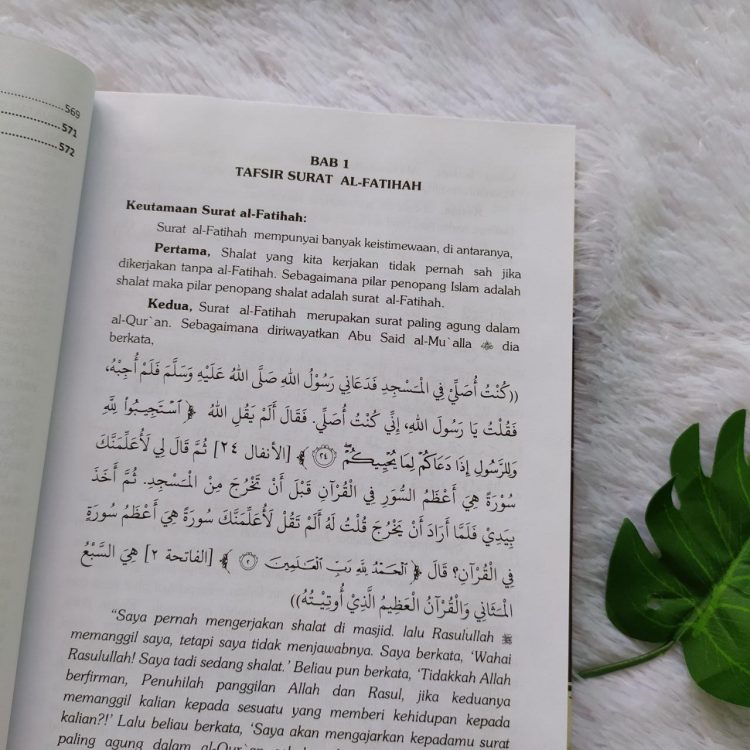 569
571
572
BAB 1
TAFSIR SURAT AL-FATIHAH
Keutamaan Surat al-Fatihah:
Surat al-Fatihah mempunyai banyak keistimewaan, di antaranya,
Pertama, Shalat yang kita kerjakan tidak pernah sah jika
dikerjakan tanpa al-Fatihah. Sebagaimana pilar penopang Islam adalah
shalat maka pilar penopang shalat adalah surat al-Fatihah.
Kedua, Surat al-Fatihah merupakan surat paling agung dalam
al-Qur`an. Sebagaimana diriwayatkan Abu Said al-Mu`alla dia
berkata,
((كُنْتُ أُصَلِّيْ فِي الْمَسْجِدِ فَدَعَانِي رَسُوْلُ اللهِ صَلَّى اللهُ عَلَيْهِ وَسَلَّمَ فَلَمْ أُجِبْهُ،
فَقُلْتُ يَا رَسُولَ اللهِ، إِنِّي كُنْتُ أُصَلِّي. فَقَالَ أَلَمْ يَقُلِ اللهُ ﴿ ٱسْتَجِيبُوا۟ لِلَّهِ
وَلِلرَّسُولِ إِذَا دَعَاكُمْ لِمَا يُحْيِيكُمْ ۖ ﴿٢٤﴾ ﴾ [الأنفال ٢٤] ثُمَّ قَالَ لِي لَأُعَلِّمَنَّكَ
سُوْرَةً هِيَ أَعْظَمُ السُّوَرِ فِي الْقُرْآنِ قَبْلَ أَنْ تَخْرُجَ مِنْ الْمَسْجِدِ. ثُمَّ أَخَذَ
بِيَدِيْ فَلَمَّا أَرَادَ أَنْ يَخْرُجَ قُلْتُ لَهُ أَلَمْ تَقُلْ لَأُعَلِّمَنَّكَ سُورَةً هِيَ أَعْظَمُ سُورَةٍ
فِي الْقُرْآنِ؟ قَالَ ﴿ ٱلْحَمْدُ لِلَّهِ رَبِّ ٱلْعَـٰلَمِينَ ﴿٢﴾ ﴾ [الفاتحة ٢] هِيَ السَّبْعُ
الْمَثَانِي وَالْقُرْآنُ الْعَظِيمُ الَّذِيْ أُوتِيْتُهُ))
“Saya pernah mengerjakan shalat di masjid. lalu Rasulullah
memanggil saya, tetapi saya tidak menjawabnya. Saya berkata, ‘Wahai
Rasulullah! Saya tadi sedang shalat.’ Beliau pun berkata, ‘Tidakkah Allah
berfirman, Penuhilah panggilan Allah dan Rasul, jika keduanya
memanggil kalian kepada sesuatu yang memberi kehidupan kepada
kalian?!’ Lalu beliau berkata, ‘Saya akan mengajarkan kepadamu surat
paling agung dalam al-Qur`an